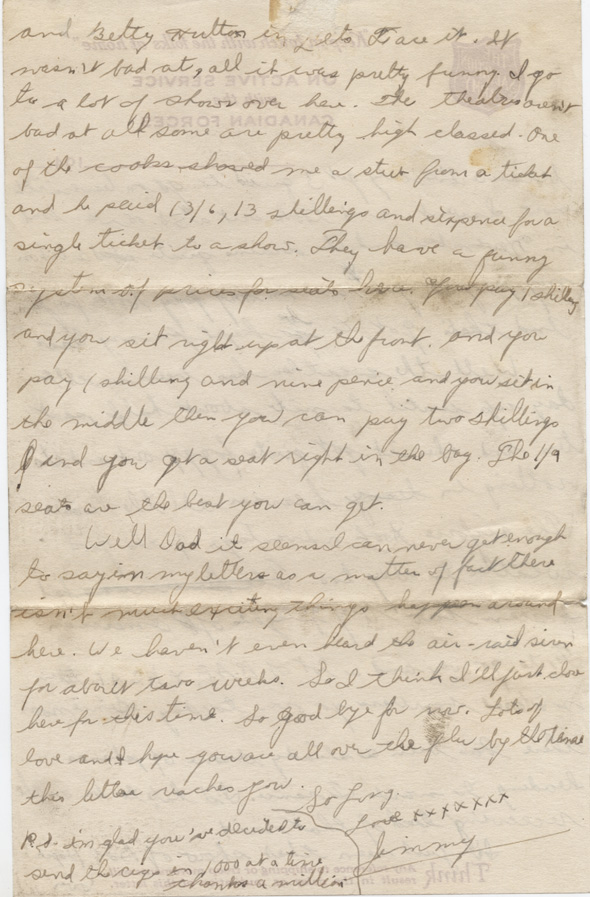 and Betty Hutton in Lets Face it. It
wasn't bad at all it was pretty funny. I go
to a lot of shows over here. The theatres aren't
bad at all some are pretty high classed. One
of the cooks showed me a stub from a ticket
and he paid 13/6, 13 shillings and sixpence for a
single ticket to a show. They have a funny
system of prices for seats here. You pay 1 shilling
and you sit right up at the front. and you
pay 1 shilling and nine pence and you sit in
the middle then you can pay two shillings
and you get a seat right in the bay. The 1/9
seats are the best you can get.
Well Dad it seems I can never get enough
to say in my letters as a matter of fact there
isn't much exciting things happen around
here. We haven't even heard the air-raid siren
for about two weeks. So I think I'll just close
here for this time. So Good bye for now. Lots of
love and I hope you are all over the flu by the time
this letter reaches you.
So Long.
Love xxxxxxxx
Jimmy
P.S. I'm glad you've decided to
send the cigs in 1000 at a time
thanks a million
ON ACTIVE SERVICE
CANADIAN FORCES
Think